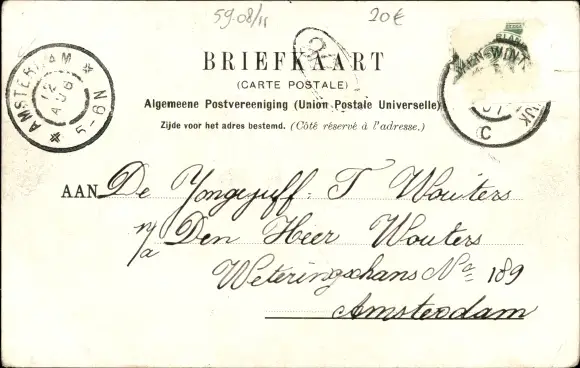 59-08/11 20€
BRIEFKAART
(CARTE POSTALE)
Algemeene Postvereeniging (Union Postale Universelle)
Zijde voor het adres bestemd. (Côté réservé à l'adresse.)
AMSTERDAM
12 AUG
5-6N
C
AAN De Yongejuff: T Wouters
p/a Den Heer Wouters
Weteringschans No 189
Amsterdam